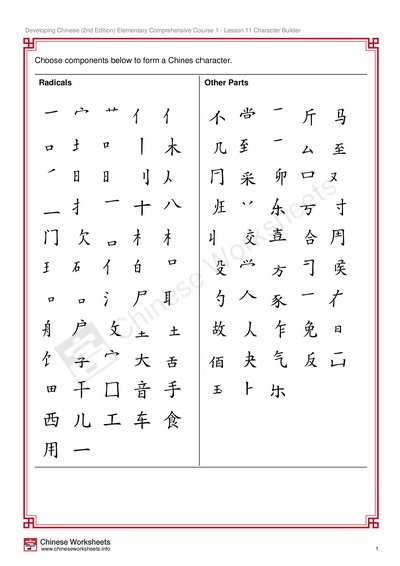 Developing Chinese (2nd Edition) Elementary Comprehensive Course 1 - Lesson 11 Character Builder
Choose components below to form a Chines character.
Radicals
一 宀 艹 亻 亻
口 土 口 丨 木
丿 日 日 刂 人
一 扌 一 十 八
门 欠 口 木 木
王 石 亻 白 口
口 口 氵 尸 耳
舟 户 攵 土 土
饣 子 宀 大 舌
田 干 囗 音 手
西 儿 工 车 食
用 一
Other Parts
不 尝 一 斤 马
几 至 一 厶 至
冂 采 卯 口 又
丷 乐 亏 寸
交 直 合 周
殳 方 侯
勺 人 豕 一
故 人 乍 免 日
佰 夬 气 反
玉 卜
Chinese Worksheets
Chinese Worksheets
www.chineseworksheets.info
1